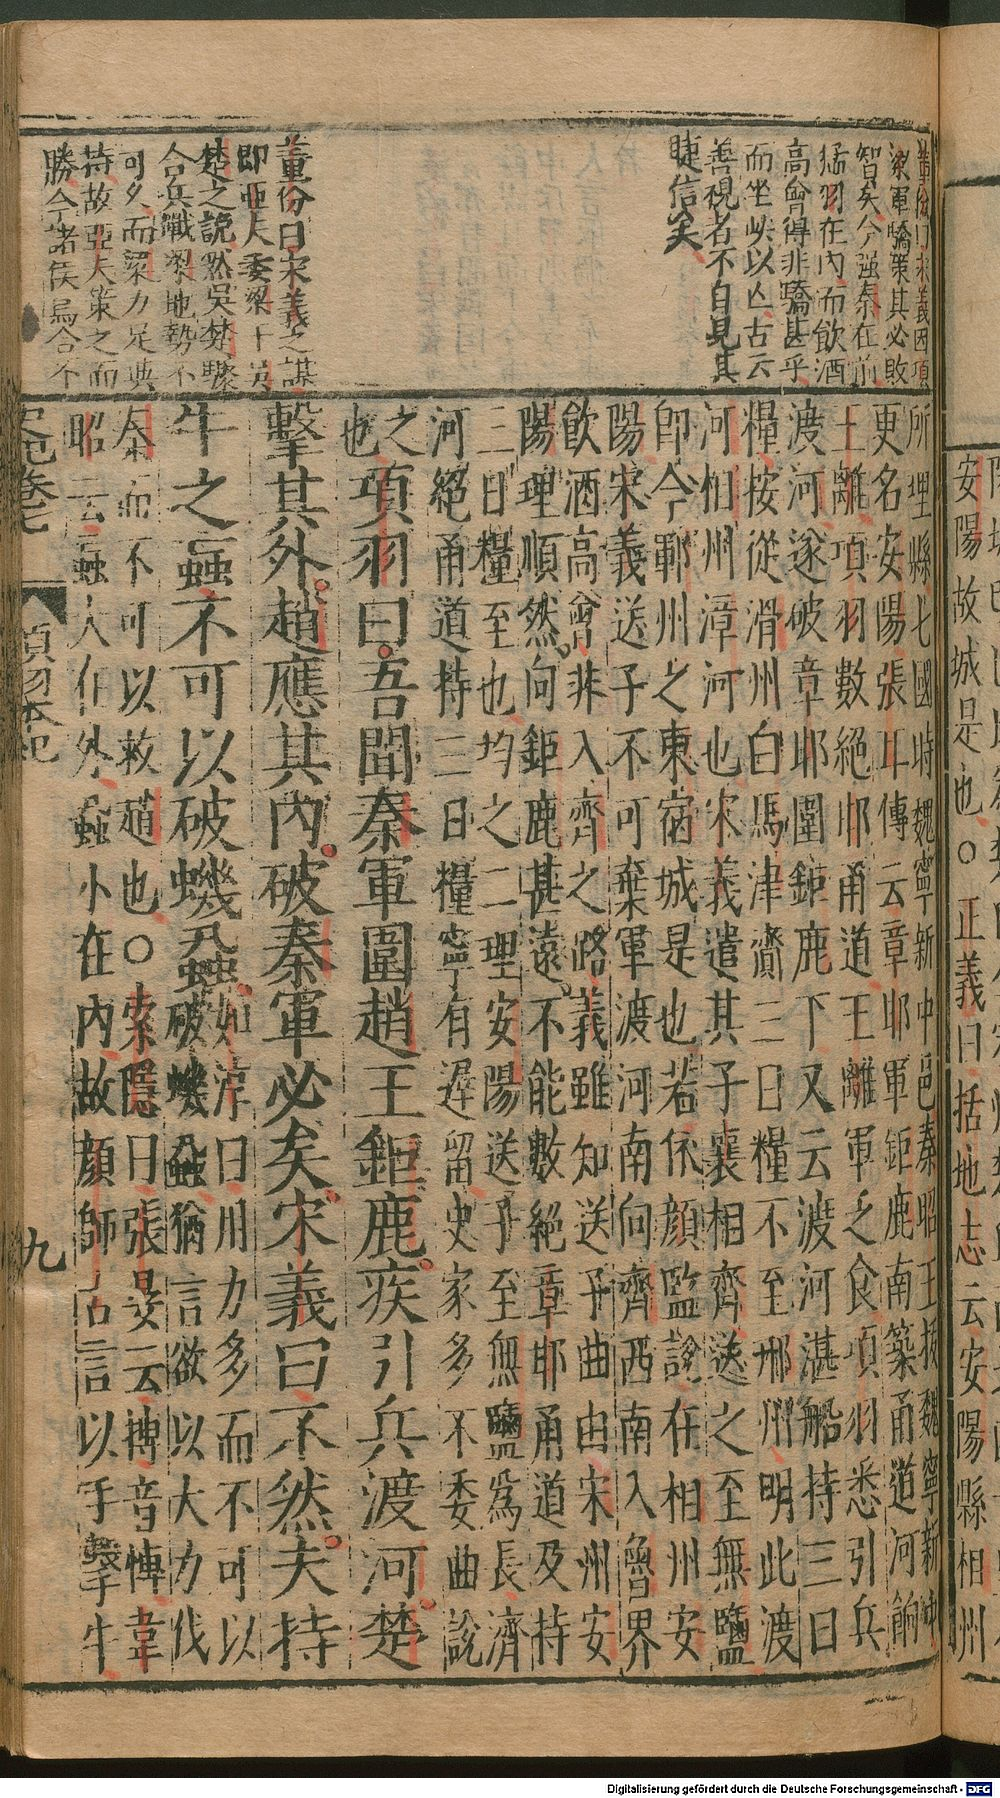 安陽故城是也○正義曰括地志云安陽縣相州
董份曰宋義因項
梁軍驕策其必敗
智矣今強秦在前
猛羽在內而飲酒
高會得非驕甚乎
而坐以亡古云
善視者不自見其
睫信矣
董份曰宋義之謀
即亞夫委梁于吳
楚之說然吳楚驟
合兵殲梁地勢不
可久而梁力足與
持故亞夫策之而
勝今諸侯烏合不
所理縣七國時魏寧新中邑秦昭王拔魏寧新中
更名安陽張耳傳云章邯軍鉅鹿南築甬道河餉
王離項羽數絕邯甬道王離軍乏食項羽悉引兵
渡河遂破章邯圍鉅鹿下又云渡河湛船持三日
糧按從滑州白馬津齎三日糧不至邢州明此渡
河相州漳河也宋義遣其子襄相齊送之至無鹽
即今鄆州之東宿城是也若依顏監說在相州安
陽宋義送子不可棄軍渡河南向齊西南入魯界
飲酒高會非入齊之路義雖知送子曲由宋州安
陽理順然向鉅鹿甚遠不能數絕章邯甬道及持
三日糧至也均之二理安陽送子至無鹽為長濟
河絕甬道持三日糧寧有遲留史家多不委曲說
之
也
項羽曰吾聞秦軍圍趙王鉅鹿疾引兵渡河楚
擊其外趙應其內破秦軍必矣宋義曰不然夫搏
牛之蝱不可以破蟣蝨
如淳曰用力多而不可以
破蟣蝨猶言欲以大力伐
秦而不可以救趙也○索隱曰張晏云搏音慱韋
昭云蝱大在外蝨小在內故顏師古言以手擊牛
史記卷七
項羽本紀
九
Digitalisierung gefördert durch die Deutsche Forschungsgemeinschaft - DFG